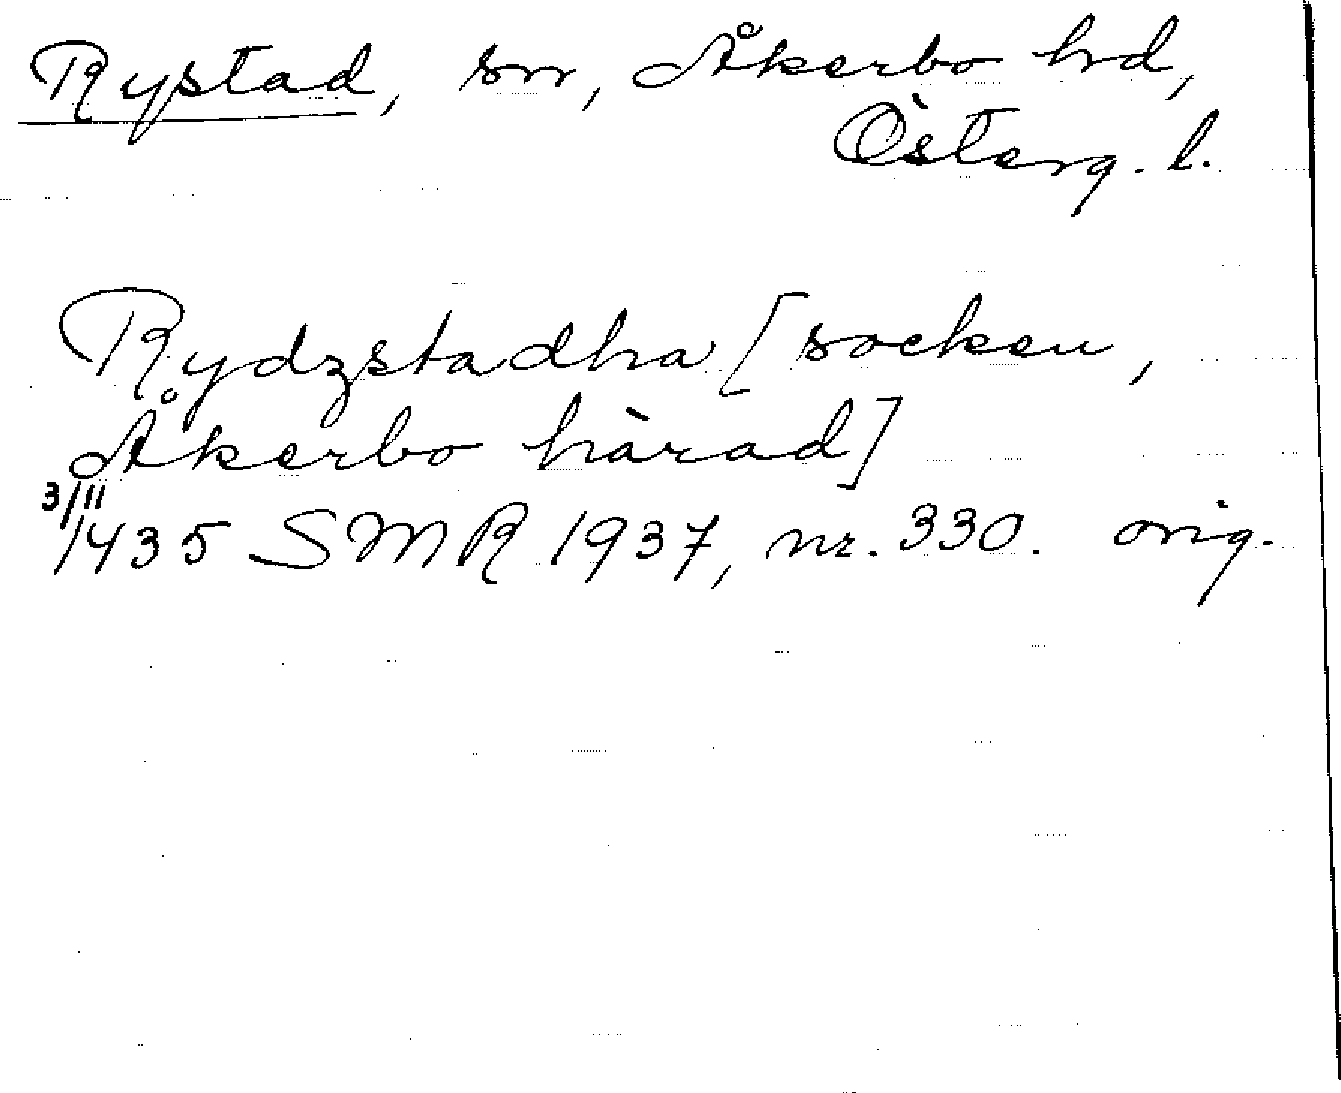 Rystad, sn, Åkerbo hd,
Österg. l.
Rydzstadha [socken,
Åkerbo härad]
3/11
1435 SMR 1937, nr. 330. orig.